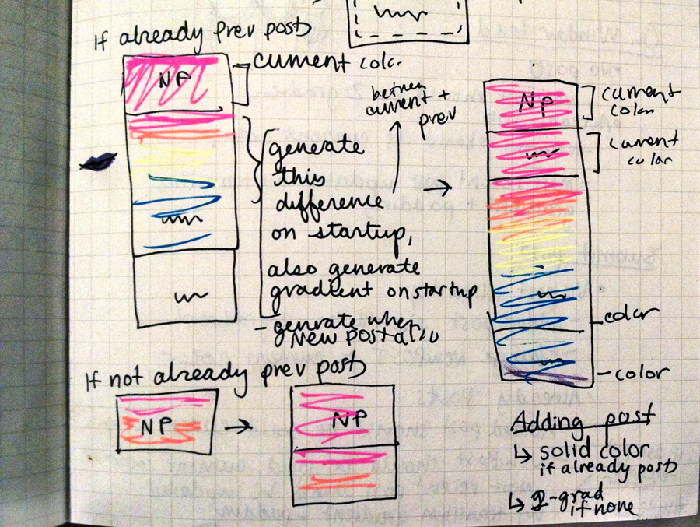 If already prev post
NP
current color
between
current +
prev
generate
this
difference
on startup,
also generate
gradient on startup
- generate when
new post also
NP
current
color
current
color
color
color
If not already prev post
NP
NP
Adding post
↳ solid color
if already post
↳ 2-grad
if none